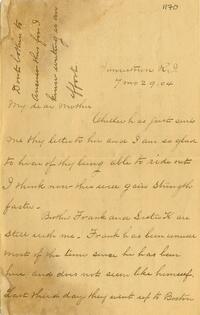 1170
Don't bother to
answer this for I
know writing is an
effort
Jamestown R.I.
7 mo 29. 04
My dear Mother
has just sent
me thy letter to her and I am so glad
to hear of thy being able to ride out
I think now thee will gain strength
faster.
Both Frank and are
still with me. Frank has been
most of the time since he has been
here and does not seem like himself.
Last third day they went up to Boston